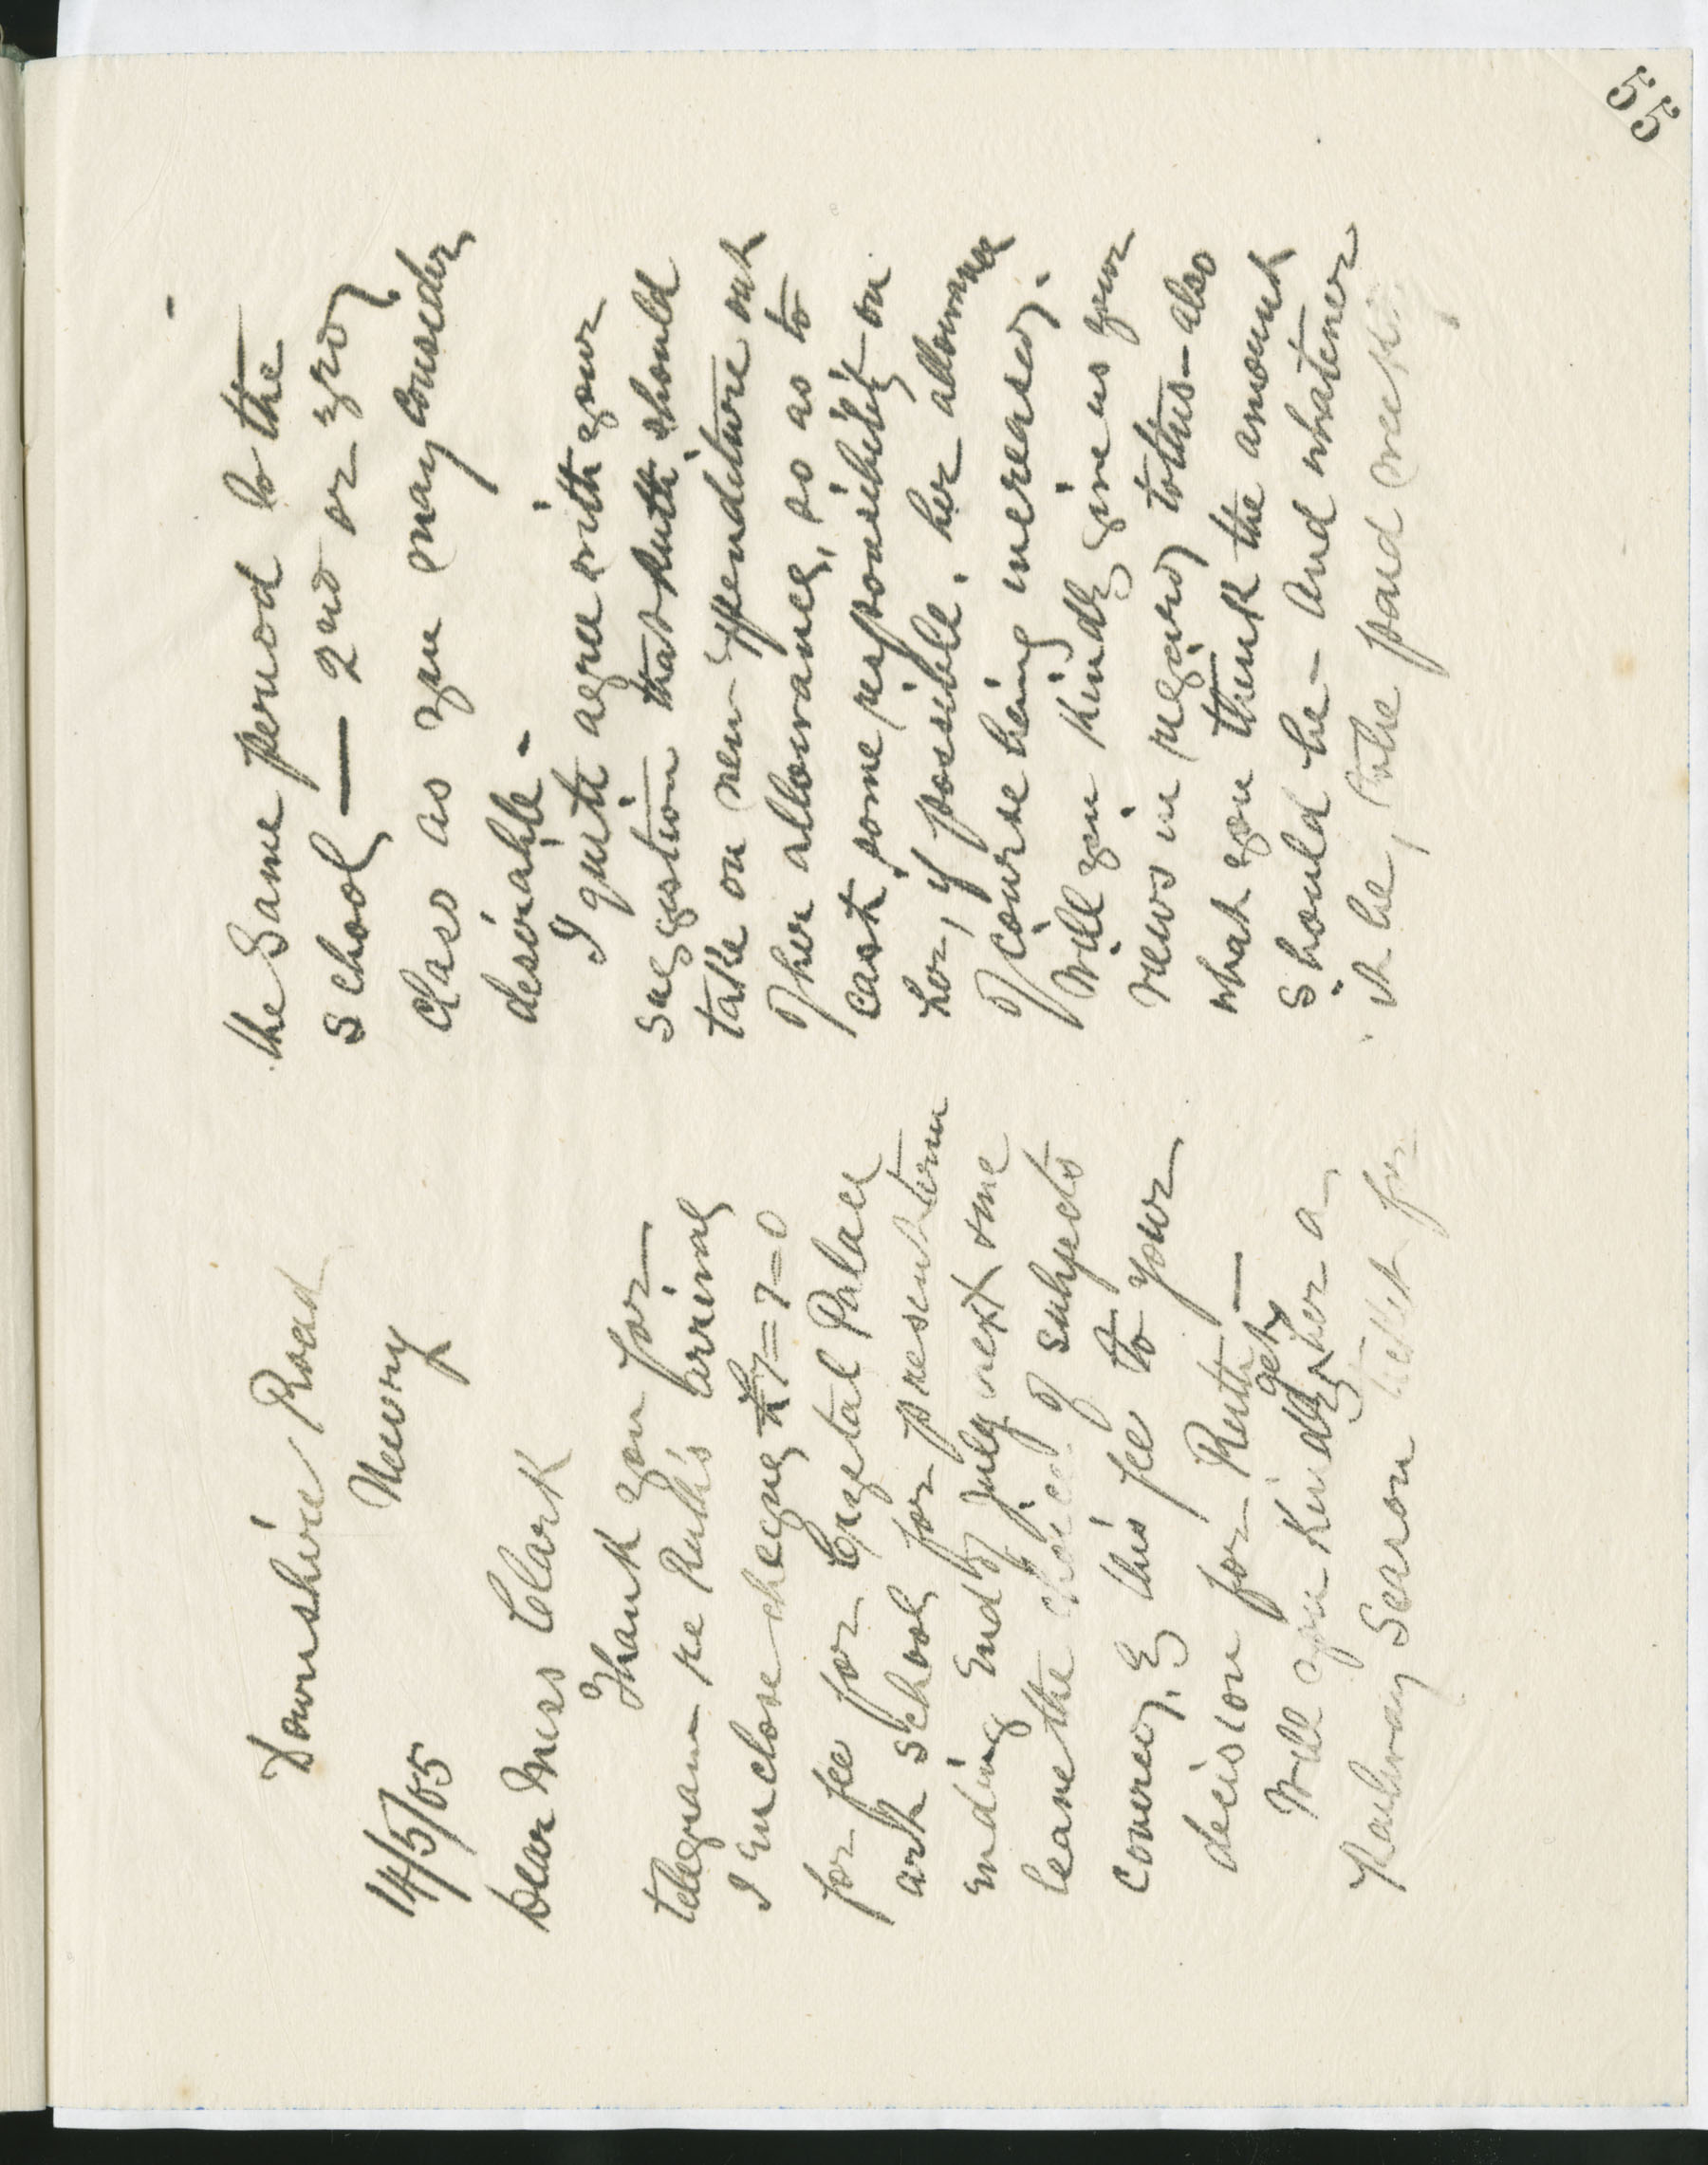 55
Downshire Road
Newry
14/5/05
Dear Miss Clark
Thank you for
telegram re Ruth's arrival
I Enclose cheque £7=7=0
for fee for Crystal Palace
art School for present term
Ending End of July next one
leave the choice of subjects
covered by this fee to your
decision for Ruth —
Will you kindly get her a
Railway Season ticket for
the Same period to the
School — 2nd or 3rd
Class as you may consider
desirable -
I quite agree with your
suggestion that Ruth should
take on new expenditure out
of her allowance, so as to
cast some responsibility on
her, if possible. her allowance
of course being increased.
Will you kindly give us your
views in regard to this - also
what you think the amount
should be - And whatever
it be, to be paid